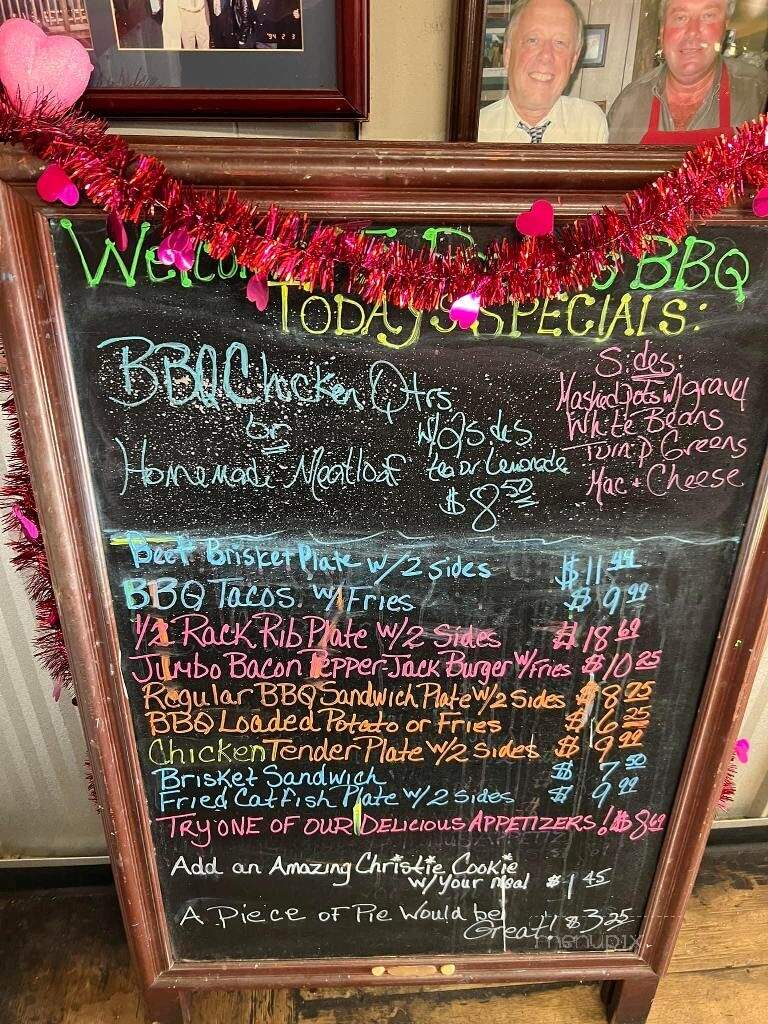 '94 2 3
Welco BBQ
Today's Specials:
BBQ Chicken Qtrs
or
Homemade Meatloaf
w/2 sides
tea or Lemonade
$8.50
Sides:
Mashed Pots w/ gravy
White Beans
Turnip Greens
Mac + Cheese
Beef Brisket Plate w/2 sides $11.49
BBQ Tacos w/ Fries $9.99
1/2 Rack Rib Plate w/2 Sides $18.69
Jumbo Bacon Pepper-Jack Burger w/Fries $10.25
Regular BBQ Sandwich Plate w/2 Sides $8.75
BBQ Loaded Potato or Fries $6.25
Chicken Tender Plate w/2 Sides $9.99
Brisket Sandwich $7.50
Fried Catfish Plate w/2 sides $9.99
Try one of our Delicious Appetizers! $8.69
Add an Amazing Christie Cookie
w/your meal $1.45
A Piece of Pie would be
Great!! $3.25
menupix